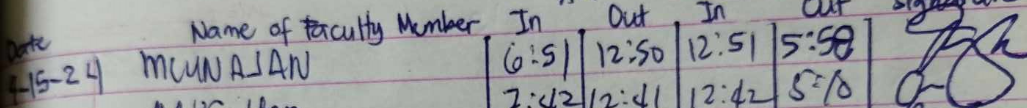 Date Name of Faculty Member In Out In Out
4-15-24 MCUNAJAN 6:51 12:50 12:51 5:50
7:42 12:41 12:42 5:10